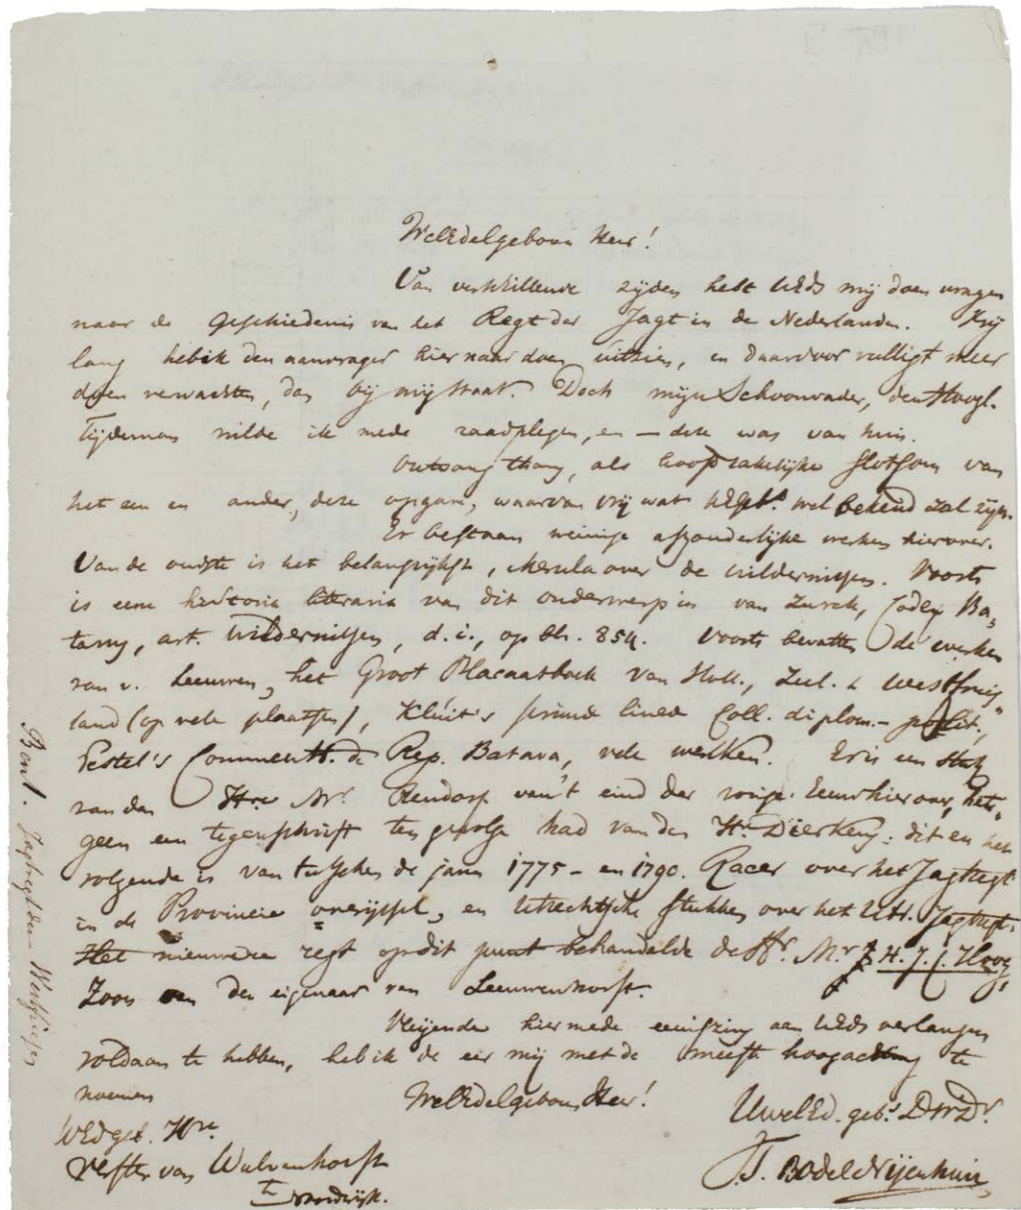 WelEdelgeboren Heer!
Van verschillende zijden hebt UEds mij doen vragen
naar de Geschiedenis van het Regt der Jagt in de Nederlanden. Vrij
lang heb ik den aanvrager hier naar doen uitzien, en daardoor welligt meer
doen verwachten, dan bij mij staat. Doch mijn Schoonvader, den Hoogl.
Tijdeman wilde ik mede raadplegen, en — deze was van huis.
Ontvang thans, als hoofdzakelijke slotsom van
het een en ander, deze opgave, waarvan vrij wat wel bekend zal zijn.
Er bestaan weinige afzonderlijke werken hierover.
Van de oudste is het belangrijkste, Merula over de wildernissen. Voorts
is eene historia literaria van dit onderwerp in van Zurck, Codex Ba-
tavus, art. Wildernissen, d. i., op bl. 854. Voorts bevatten de werken
van v. Leeuwen, het Groot Placaatboek van Holl., Zeel. & Westfries-
land (op vele plaatsen), Kluit's primae lineae Coll. diplom.-polit.,
Pestel's Commentt. de Rep. Batava, vele wenken. Er is een stuk
van den Hr. Mr. Rendorp van 't eind der vorige Eeuw hierover, het-
geen een tegenschrift ten gevolge had van den Hr. Dierkens: dit en het
volgende is van tusschen de jaren 1775 - en 1790. Racer over het Jagtregt
in de Provincie Overijssel, en Utrechtsche stukken over het Utr. Jagtregt.
Het nieuwere regt op dit punt behandelde de Hr. Mr. H. J. C. Hoog,
Zoon van den eigenaar van Leeuwenhorst.
Vleijende hiermede eenigzins aan UEds verlangen
voldaan te hebben, heb ik de eer mij met de meeste hoogachting te
noemen
WelEdelgeboren Heer!
UwelEd. geb. DwDr.
J.T. Bodel Nijenhuis,
WEdgeb. Hre.
Verster van Wulverhorst
Noordwijk.
Bent. Jagtregt den